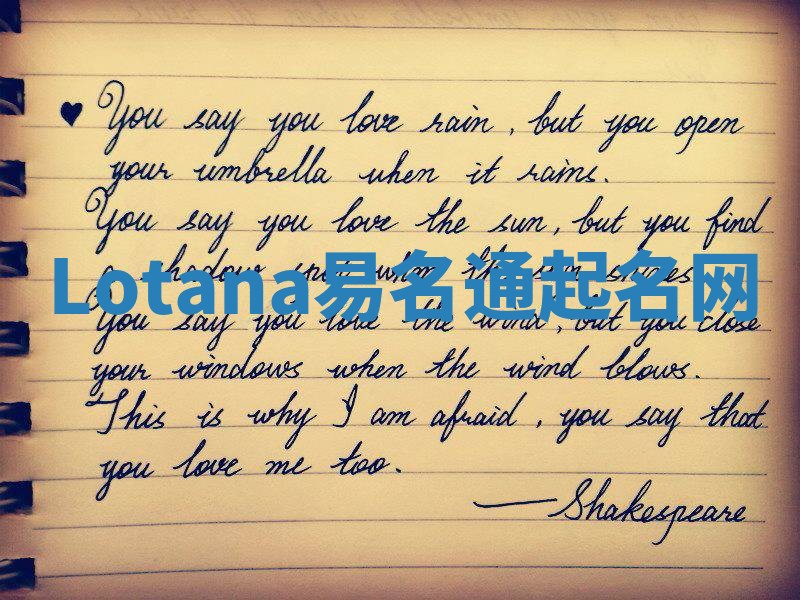 You say you love rain, but you open
your umbrella when it rains.
You say you love the sun, but you find
a shadow spot when the sun shines.
Lotana易名通起名网
You say you love the wind, but you close
your windows when the wind blows.
This is why I am afraid, you say that
you love me too.
—Shakespeare